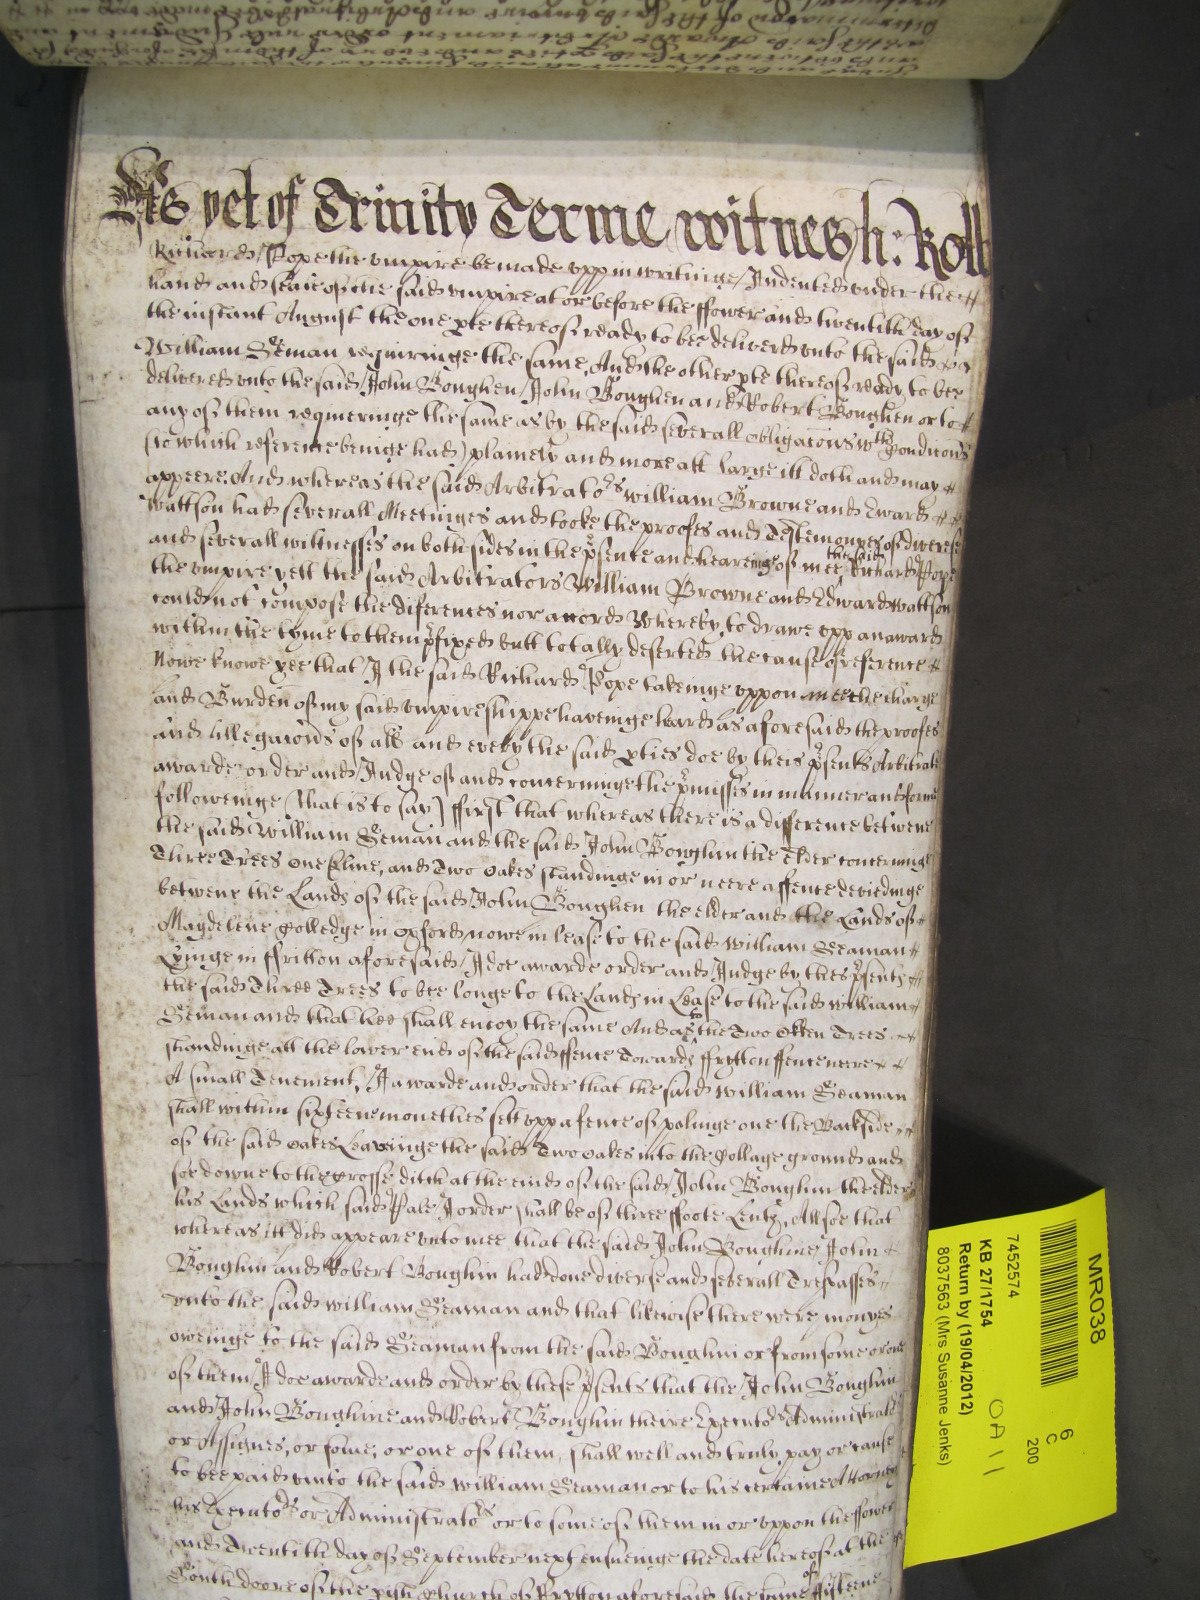 As yet of Trinity Terme witnes h: Roll
Richard Pope the umpire be made upp in writinge Indented under the
hand and seale of the said umpire at or before the ffower and twentith day of
the instant August the one pte thereof ready to bee deliverd unto the said
William Seman requiringe the same, And the other pte thereof ready to bee
delivered unto the said John Boughen John Boughen and Robert Boughen or to
any of them requieringe the same as by the said severall obligacions wth Condicions
(to which reference beinge had) plainely and more att large itt doth and may
appeere, And whereas the said Arbitrators William Browne and Edward
Wattson had severall Meetinges and tooke the proofes and Testemonyes of diverse
and severall wittnesses on both sides in the psence and heareinge of mee the said Richard Pope
the umpire yett the said Arbitrators William Browne and Edward Wattson
could not compose the diferences nor accord Whereby to drawe upp an award
within the tyme to them pfixed butt totally deserted the cause of reference
Nowe knowe yee that I the said Richard Pope takeinge uppon mee the charge
and Burden of my said umpireshippe haveinge heard as aforesaid the proofes
and Allegacions of all and every the said pties doe by theis psents Arbitrate
awarde order and Judge of and concerninge the pmisses in manner and forme
followeinge (that is to say) ffirst that whereas there is a difference betwene
the said William Seman and the said John Boughin the elder concerninge
Three Trees one Elme, and Two oakes standinge in or neere a ffence devidinge
betwene the Lands of the said John Boughen the elder and the Lands of
Magdelene Colledge in Oxford nowe in lease to the said William Seaman
Lyinge in ffritton aforesaid I doe awarde order and Judge by thes psents
the said Three Trees to bee longe to the Lands in Lease to the said William
Seman and that hee shall enioy the same And as to the Two Oken Trees
standinge att the lower end of the said ffence Towards ffrytton ffence neere
A small Tenement, I awarde and order that the said William Seaman
shall within sixteene monethes sett upp a fence of palinge one the Backside
of the said oakes Leaveinge the said Two oakes into the Collage ground and
soe downe to the Crosse ditch at the end of the said John Boughin the elder
his Lands which said Pale I order shall be of three ffoote Allsoe that
whereas itt did appeare unto mee that the said John Boughine John
Boughin and Robert Boughin had done diverse and severall Trespasses
unto the said William Seaman and that likewise there were monyes
oweinge to the said Seaman from the said Boughin or from some or one
of them, I doe awarde and order by these psents that the John Boughin
and John Boughine and Robert Boughin theire Executors Administrators
or Assignes, or some, or one of them, shall well and truly pay or cause
to bee paid unto the said William Seaman or to his certaine Attorney
his Executors or Administrators or to some of them in or uppon the ffower
and Twentith day of September next ensueinge the date hereof at the
South doore of the pish Church of ffrytton aforesaid the sume of ffifteene
MR038
6
C
200
7452574
KB 27/1754
Return by (19/04/2012)
8037563 (Mrs Susanne Jenks)